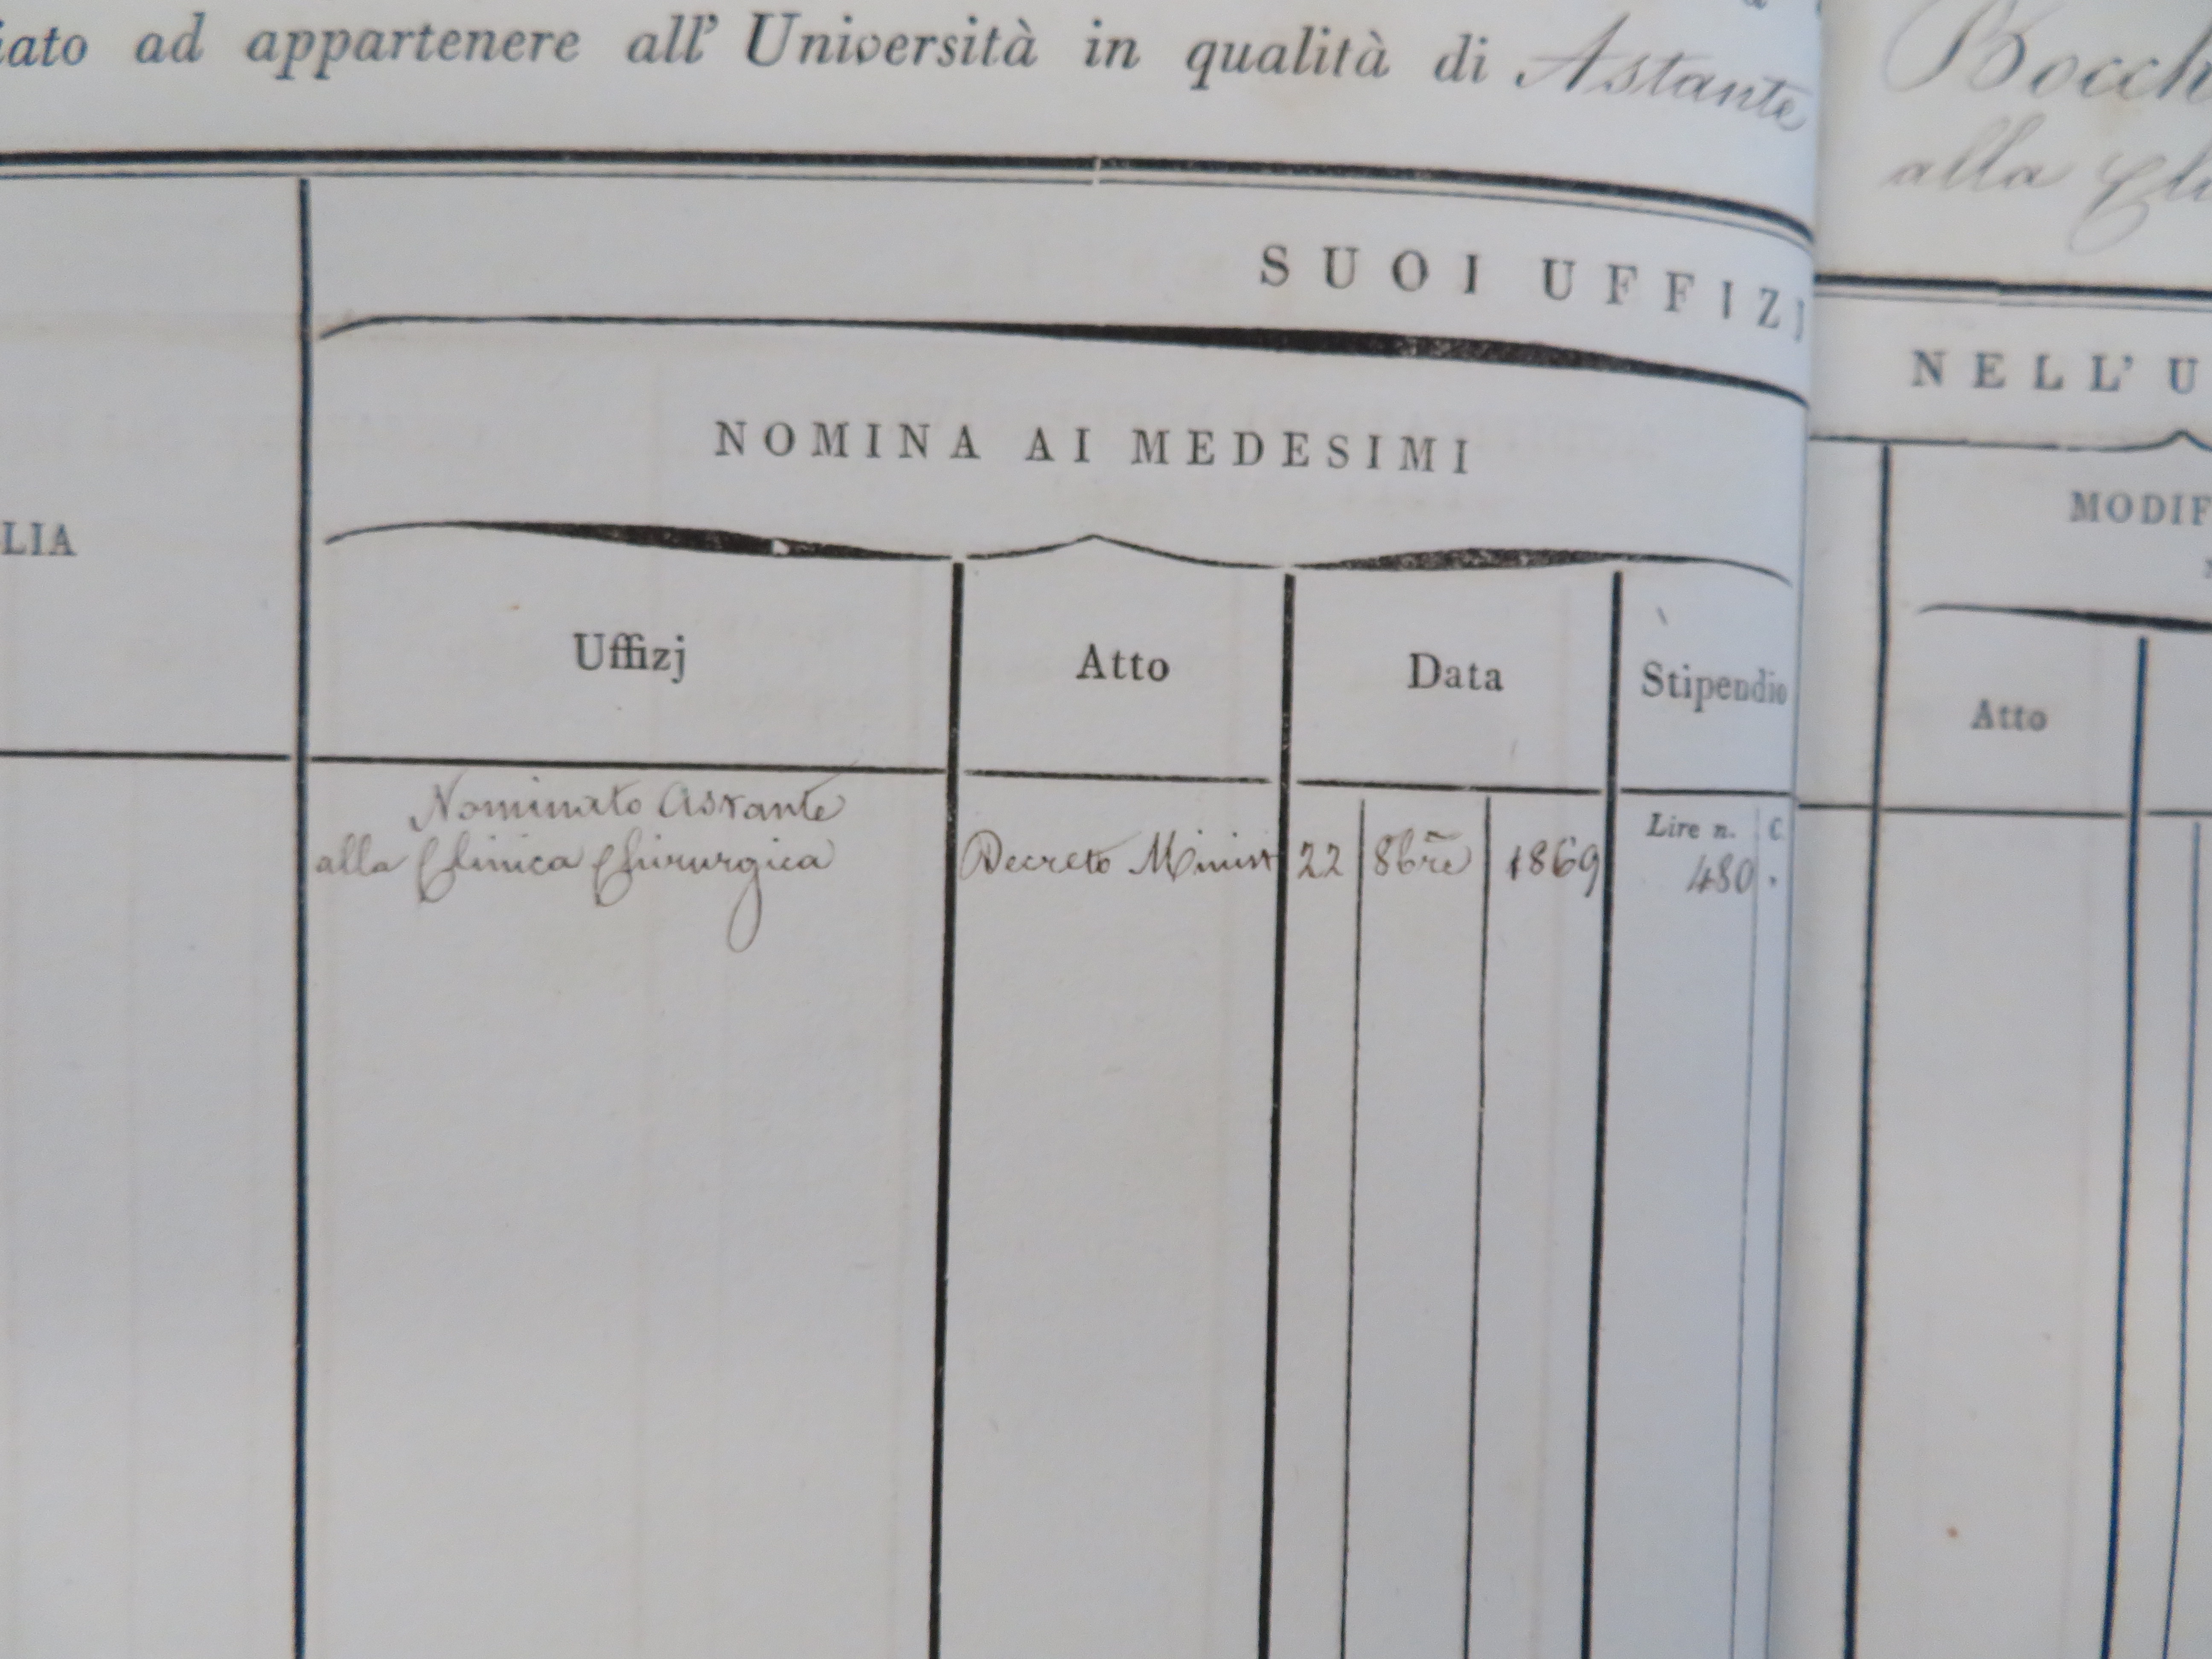 iato ad appartenere all' Università in qualità di Astante
Bocch
alla Cli
SUOI UFFIZJ
NELL' U
NOMINA AI MEDESIMI
MODIF
LIA
Uffizj
Atto
Data
Stipendio
Atto
Lire n. C.
Nominato Astante
alla Clinica Chirurgica
Decreto Minist 22 8bre 1869 480 .